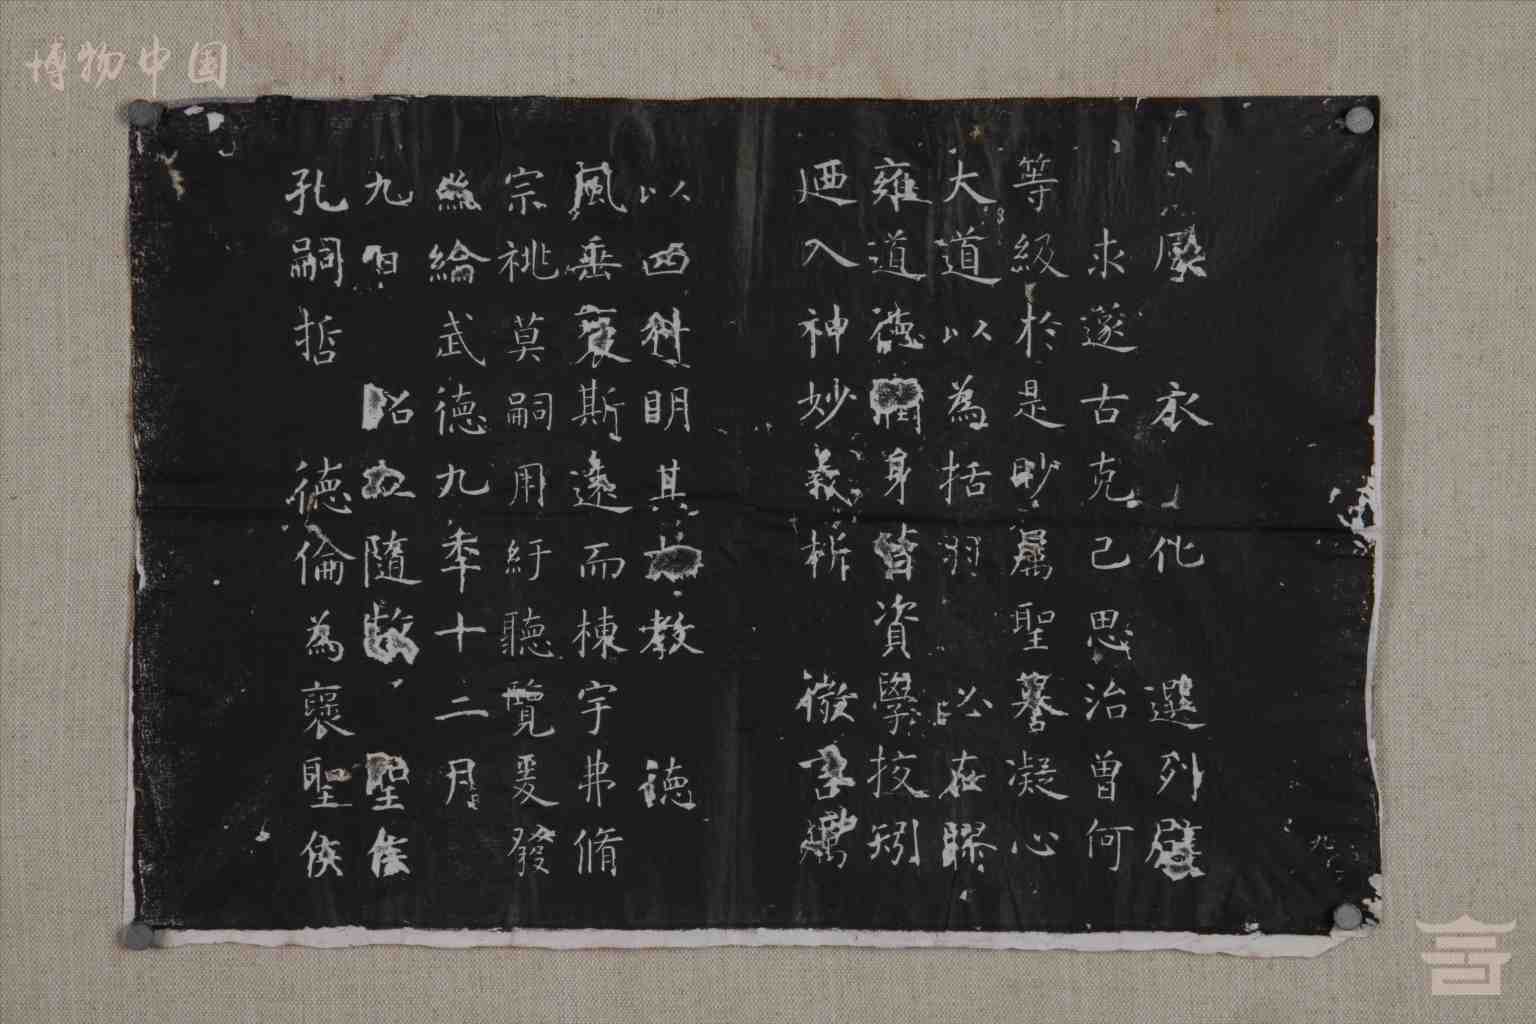 博物中国
厥 衣 化 選列辟
求遂古克己思治曾何
等級於是眇属聖謩凝心
大道以為括羽 必在膠
雍道德潤身皆資學挍矧
迺入神妙義析 徵言
以四科明其 教 德
風垂裒斯遠而棟宇弗脩
宗祧莫嗣用紆聽覽爰發
絲綸武德九年十二月
九日 詔立隨故 聖侯
孔嗣哲 德倫為襃聖侯
九